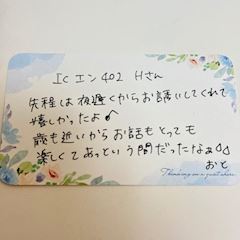 IC エン 402 Hさん
先程は夜遅くからお誘いしてくれて
嬉しかったよ♪
歳も近いからお話もとっても
楽しくてあっという間だったなぁ
おと